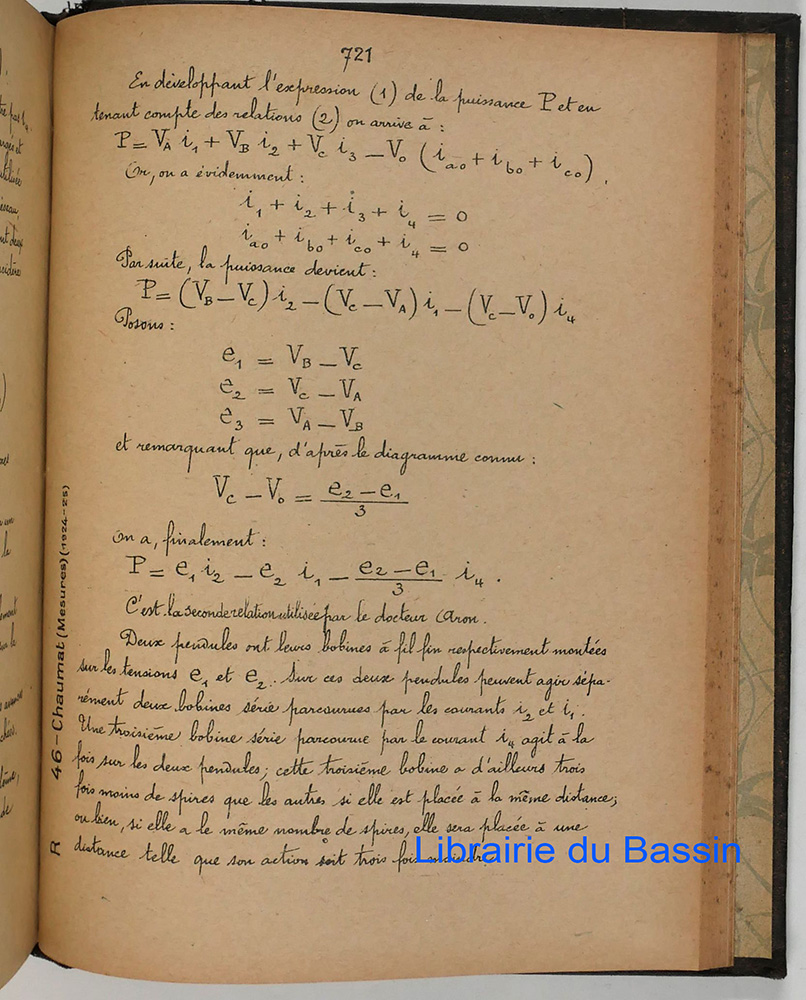 721
En développant l'expression (1) de la puissance P et en
tenant compte des relations (2) on arrive à :
P = V_A i_1 + V_B i_2 + V_c i_3 _ V_o (i_ao + i_bo + i_co) .
Or, on a évidemment :
i_1 + i_2 + i_3 + i_4 = 0
i_ao + i_bo + i_co + i_4 = 0
Par suite, la puissance devient :
P = (V_B _ V_c) i_2 _ (V_c _ V_A) i_1 _ (V_c _ V_o) i_4
Posons :
e_1 = V_B _ V_c
e_2 = V_c _ V_A
e_3 = V_A _ V_B
et remarquant que, d'après le diagramme connu :
V_c _ V_o = (e_2 _ e_1)/3
On a, finalement :
P = e_1 i_2 _ e_2 i_1 _ (e_2 _ e_1)/3 i_4 .
C'est la seconde relation utilisée par le docteur Aron.
Deux pendules ont leurs bobines à fil fin respectivement montées
sur les tensions e_1 et e_2. Sur ces deux pendules peuvent agir sépa-
rément deux bobines série parcourues par les courants i_2 et i_1.
Une troisième bobine série parcourue par le courant i_4 agit à la
fois sur les deux pendules ; cette troisième bobine a d'ailleurs trois
fois moins de spires que les autres si elle est placée à la même distance ;
ou bien, si elle a le même nombre de spires, elle sera placée à une
distance telle que son action soit trois fois moindre.
R 46 - Chaumat (Mesures) (1924-25)
Librairie du Bassin